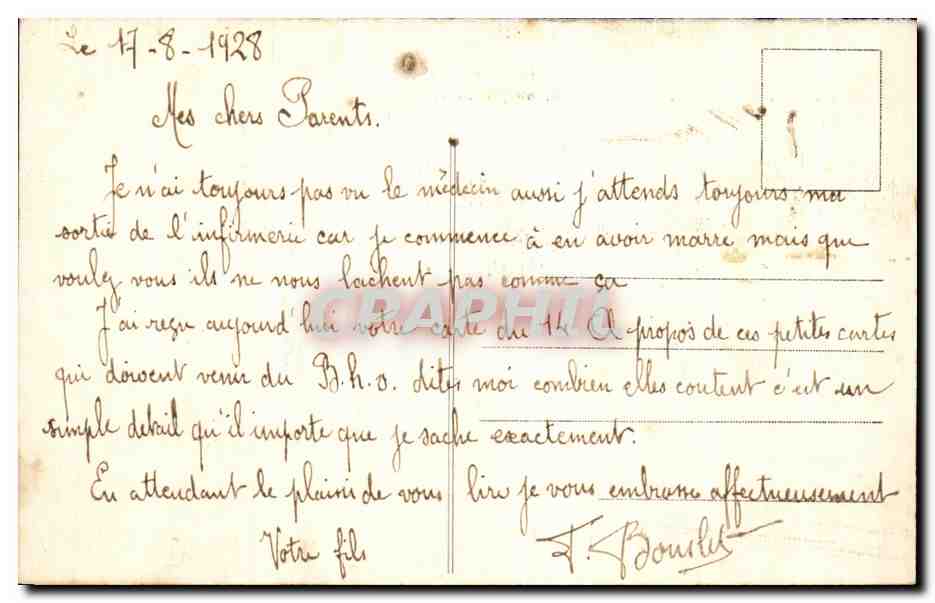 Le 17-8-1928
Mes chers Parents.
Je n'ai toujours pas vu le médecin aussi j'attends toujours ma
sortie de l'infirmerie car je commence à en avoir marre mais que
voulez vous ils ne nous lachent pas comme ça
J'ai reçu aujourd'hui votre carte du 14. A propos de ces petites cartes
qui doivent venir du B.h.v. dites moi combien elles coutent c'est un
simple detail qu'il importe que je sache exactement.
En attendant le plaisir de vous lire je vous embrasse affectueusement
Votre fils
CRAPHIL